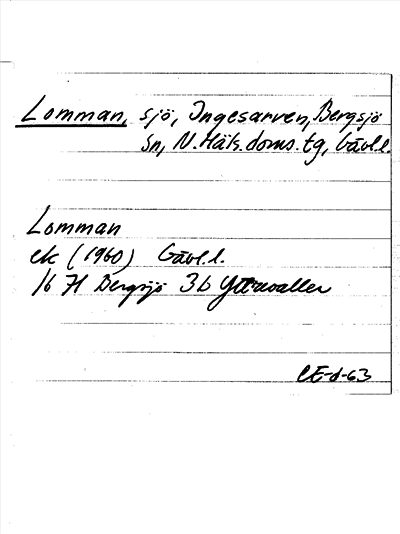 Lomman, sjö, Ingesarven, Bergsjö
sn, N. Häls. doms. tg, Gävl.l.
Lomman
ek (1960) Gävl.l.
16 H Bergsjö 3b Yttrevaller
CE-d-63